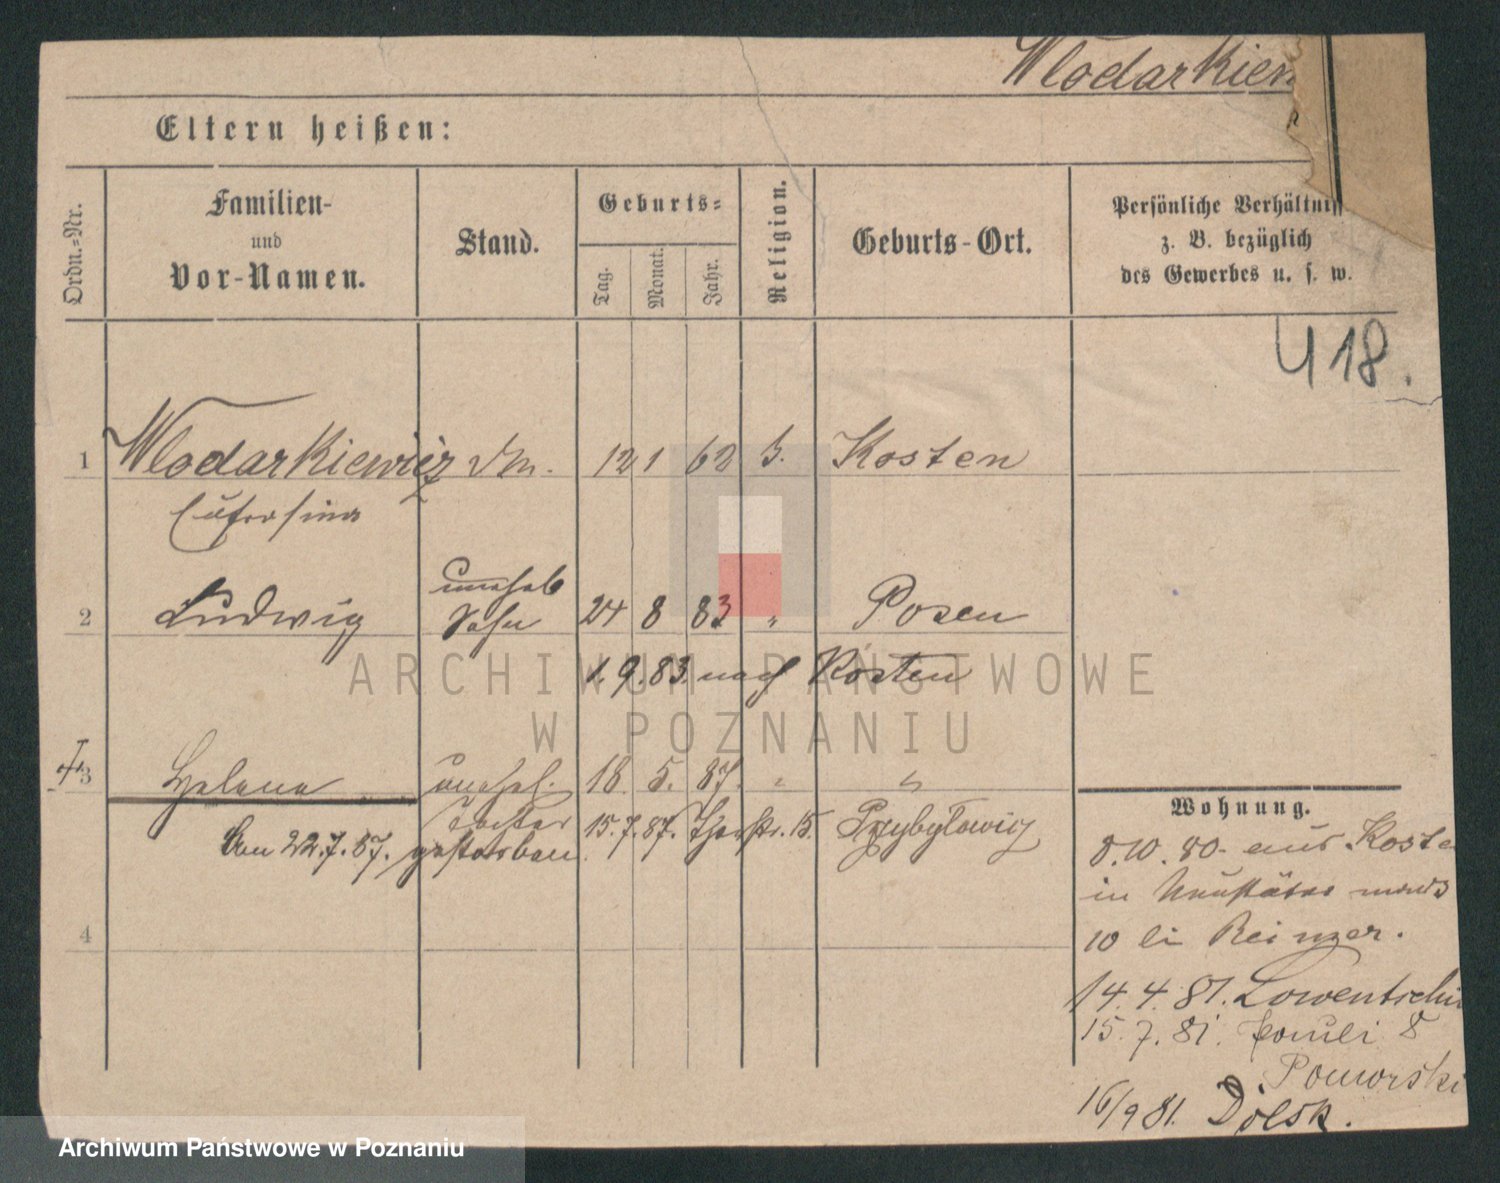 Wlodarkiew
Eltern heißen:
Ordn.-Nr.
Familien-
und
Vor-Namen.
Stand.
Geburts-
Tag.
Monat.
Jahr.
Religion.
Geburts-Ort.
Persönliche Verhältniss
z. B. bezüglich
des Gewerbes u. s. w.
418.
1 Wlodarkiewicz 12 1 62 Kosten
2 Ludwig unehel. Sohn 24 8 83 " Posen
1.9.83. nach Kosten
3 Helene unehel. 18. 5. 87. " "
Tochter 15.7.87. Przybylowicz
Am 22.7.87. gestorben
4
Wohnung.
8.10.80. aus Koste
in
10 bei Reinzer.
14.4.81. Lowentschi
15.7.81. 8
Pomorski
16/9 81. Dolsk.
ARCHIWUM PAŃSTWOWE
W POZNANIU
Archiwum Państwowe w Poznaniu